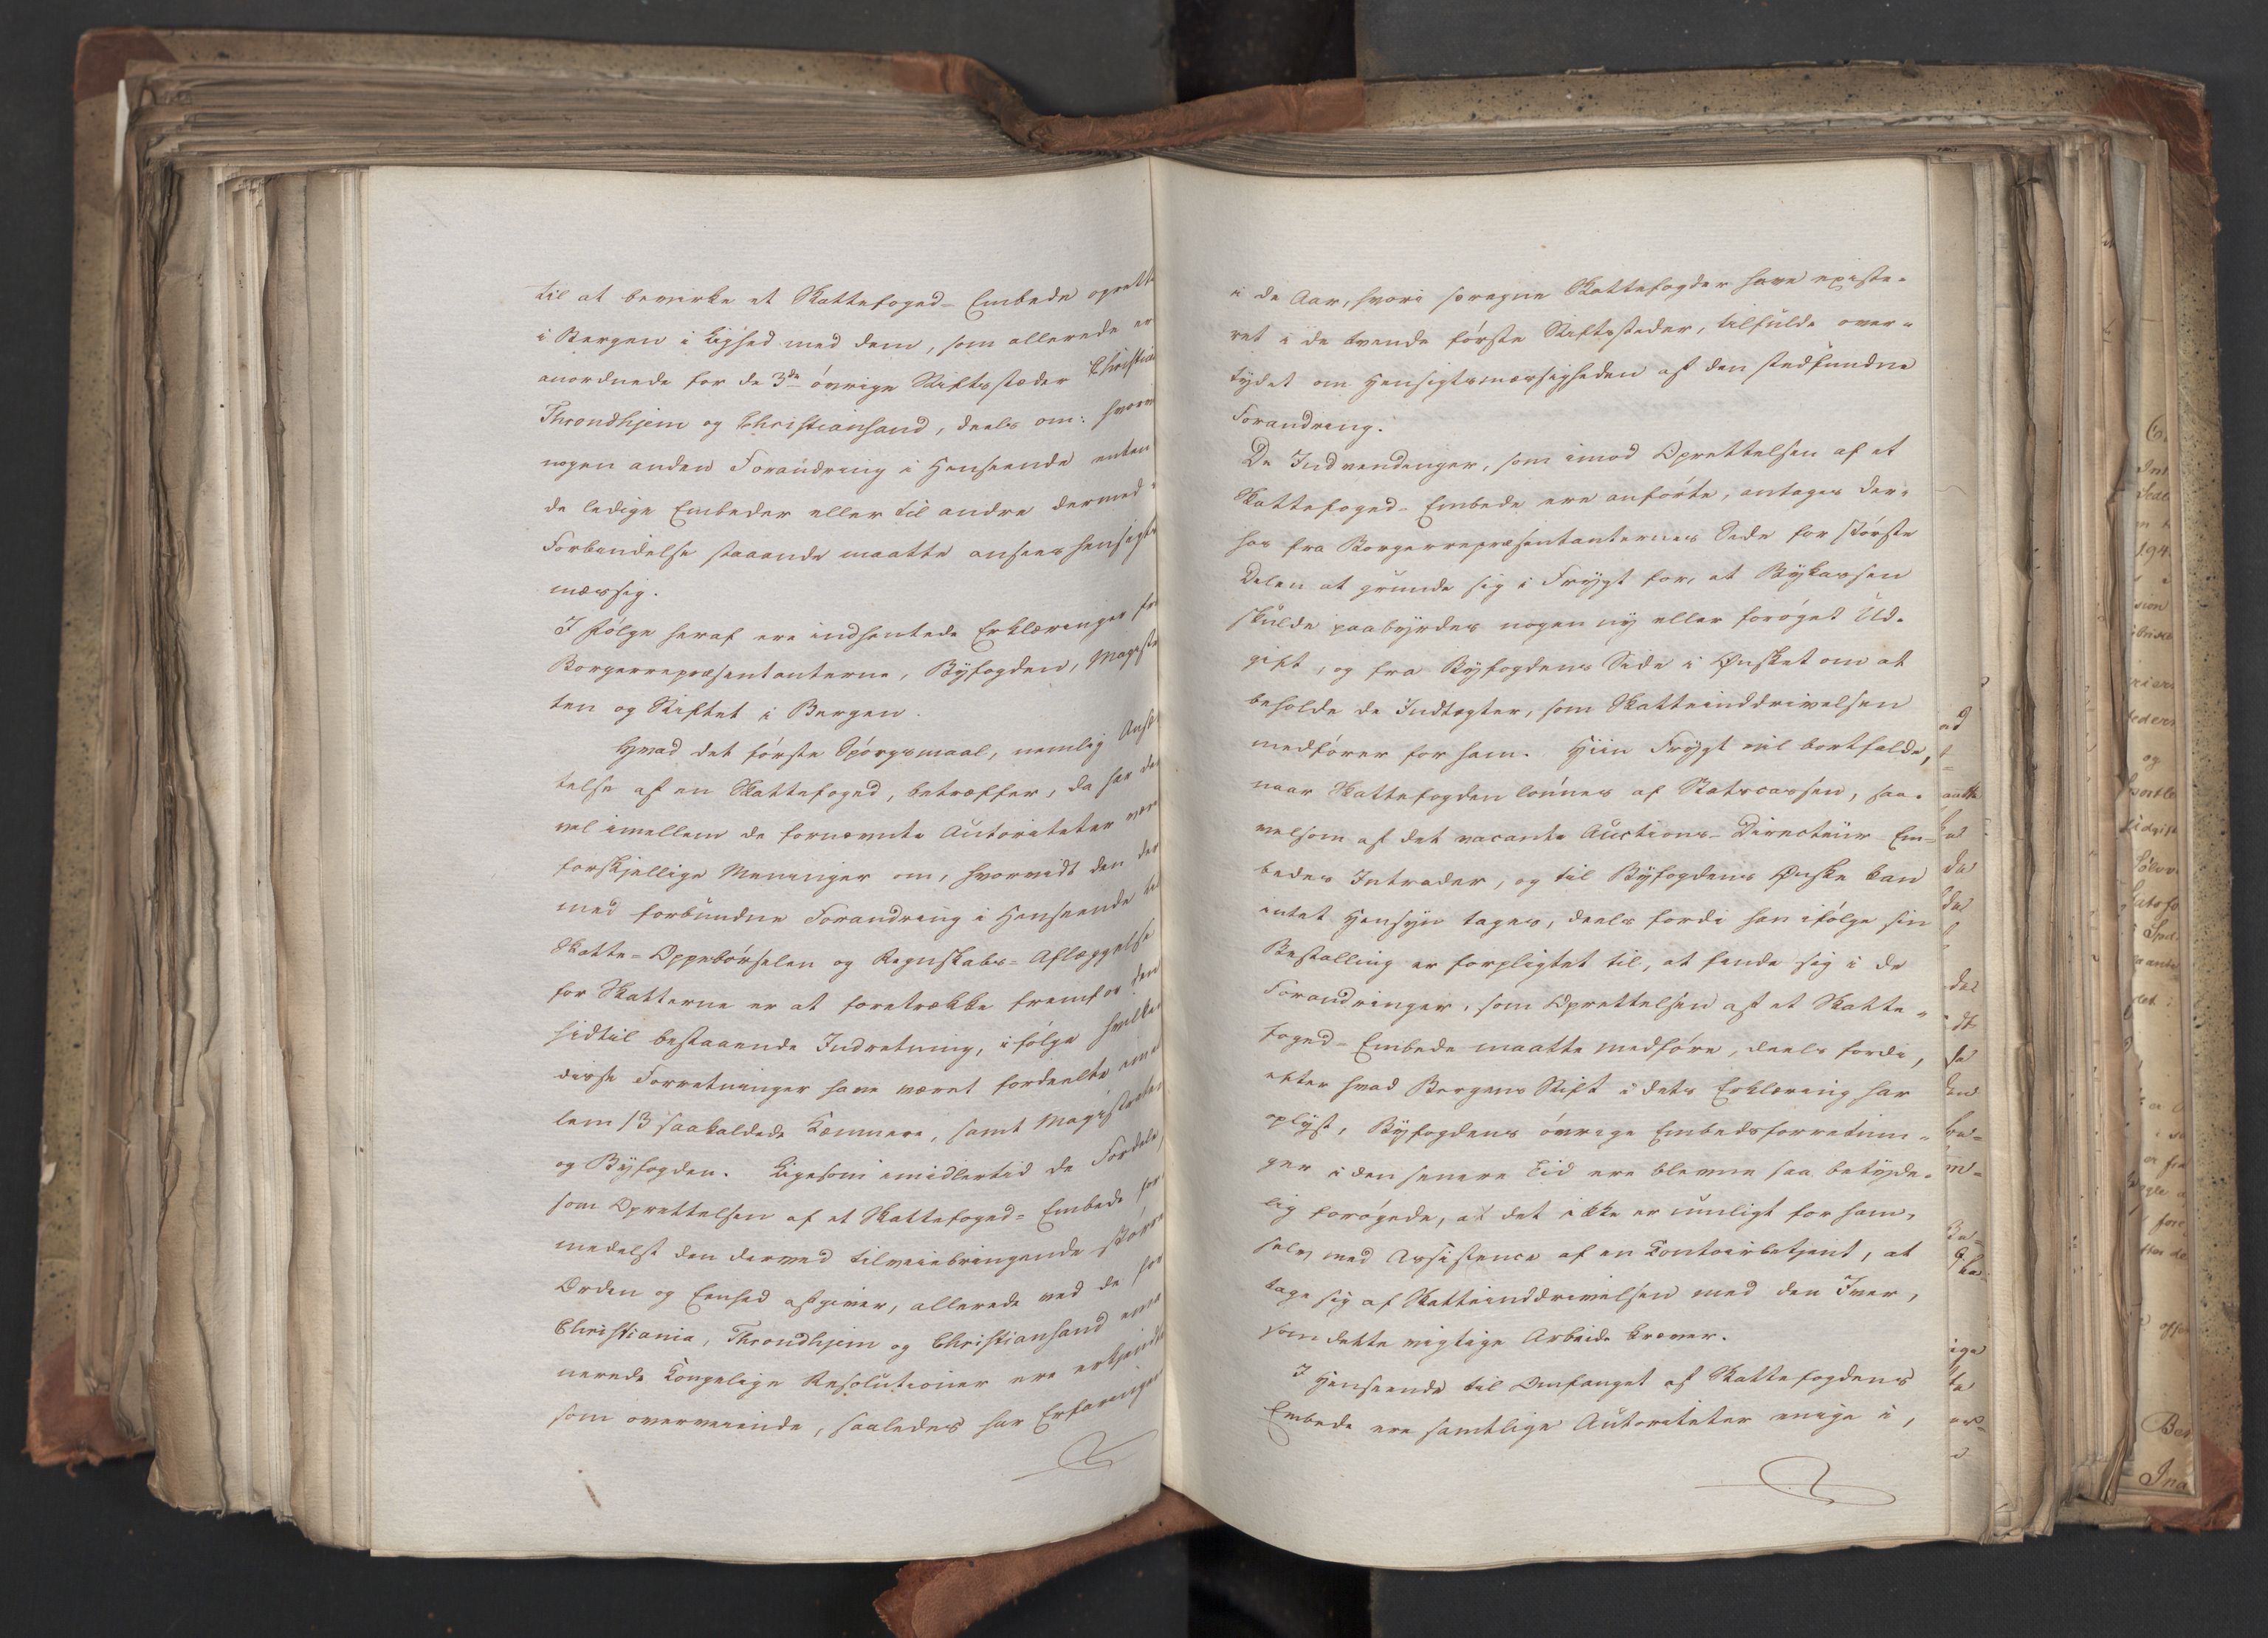 til at bevirke et Skattefoged-Embede oprett
i Bergen i Liighed med dem, som allerede er
anordnede for de 3de øvrige Stiftsstæder Christia
Throndhjem og Christiansand, deels om: hvorvi
nogen anden Forandring i Henseende enten
de ledige Embeder eller til andre dermed i
Forbindelse staaende maatte ansees hensigts
mæssig.
I følge heraf ere indhentede Erklæringer fra
Borgerrepræsentanterne, Byfogden, Magistra
ten og Stiftet i Bergen.
Hvad det første Spørgsmaal, nemlig Ansæt
telse af en Skattefoged, betræffer, da har der
vel imellem de fornævnte Autoriteter være
forskjellige Meninger om, hvorvidt den der
med forbundne Forandring i Henseende til
Skatte-Oppebørselen og Regnskabs-Aflæggelse
for Skatterne er at foretrække fremfor den
hidtil bestaaende Indretning, ifølge hvilken
disse Forretninger have været fordeelte imel
lem 13 saakaldede Kæmnere, samt Magistraten
og Byfogden. Ligesom imidlertid de Fordele,
som Oprettelsen af et Skattefoged-Embede for
medelst den derved tilveiebringende større
Orden og Eenhed afgiver, allerede ved de for
Christiania, Throndhjem og Christiansand ema
nerede Kongelige Resolutioner ere erkjendte
som overveiende, saaledes har Erfaringen
i de Aar, hvori særegne Skattefogder have existe-
ret i de tvende første Stiftsstæder, tilfulde over-
tydet om Hensigtsmæssigheden af den stedfundne
Forandring.
De Indvendinger, som imod Oprettelsen af et
Skattefoged-Embede ere anførte, antages der-
hos fra Borgerrepræsentanternes Side for største
Delen at grunde sig i Frygt for, at Bykassen
skulde paabyrdes nogen ny eller forøget Ud-
gift, og fra Byfogdens Side i Ønsket om at
beholde de Indtægter, som Skatteinddrivelsen
medfører for ham. Hiin Frygt vil bortfalde,
naar Skattefogden lønnes af Statscassen, saa-
velsom af det vacante Auctions-Directeur-Em-
bedes Intrader, og til Byfogdens Ønske kan
intet Hensyn tages, deels fordi han ifølge sin
Bestalling er forpligtet til, at finde sig i de
Forandringer, som Oprettelsen af et Skatte-
foged-Embede maatte medføre, deels fordi,
efter hvad Bergens Stift i dets Erklæring har
oplyst, Byfogdens øvrige Embedsforretnin-
ger i den senere Tid ere blevne saa betyde-
lig forøgede, at det ikke er muligt for ham,
selv med Assistence af en Contoirbetjent, at
tage sig af Skatteinddrivelsen med den Iver,
som dette vigtige Arbeide kræver.
I Henseende til Omfanget af Skattefogdens
Embede ere samtlige Autoriteter enige i,